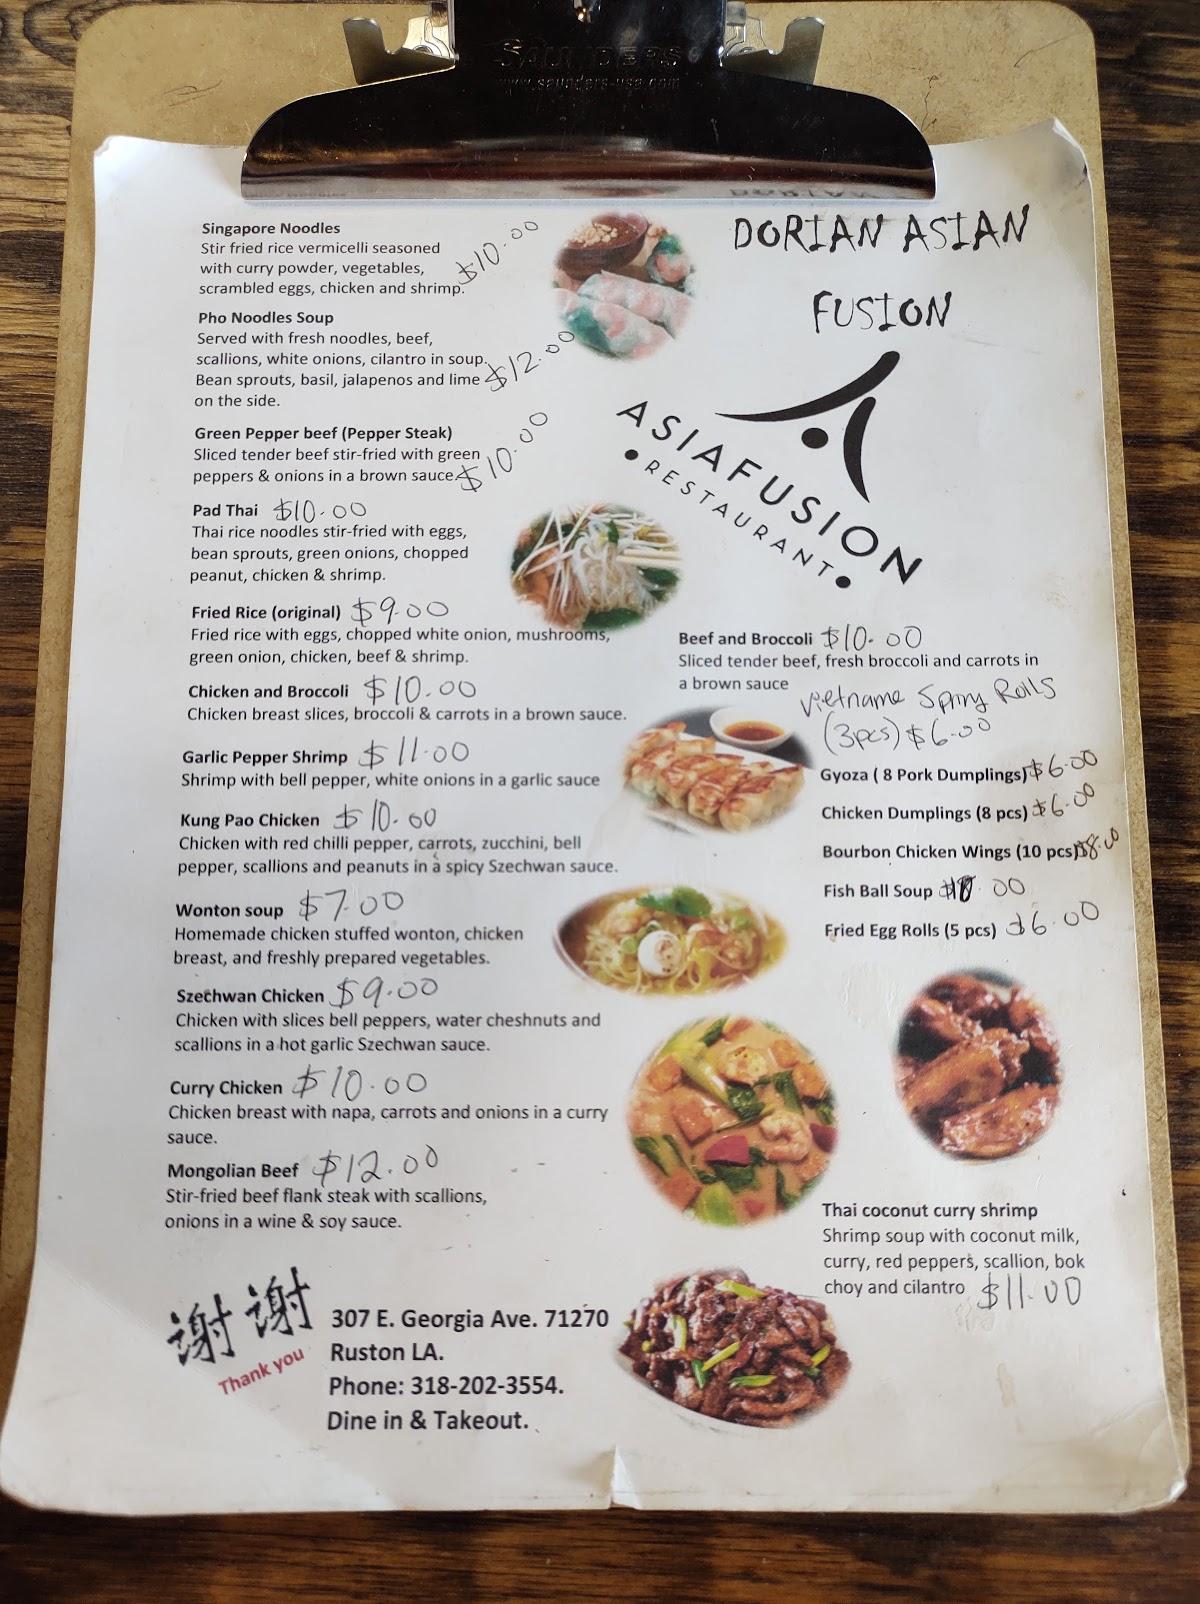 SAUNDERS
www.saunders-usa.com
DORIAN ASIAN
FUSION
ASIAFUSION
•RESTAURANT•
Singapore Noodles
Stir fried rice vermicelli seasoned
with curry powder, vegetables,
scrambled eggs, chicken and shrimp. $10.00
Pho Noodles Soup
Served with fresh noodles, beef,
scallions, white onions, cilantro in soup.
Bean sprouts, basil, jalapenos and lime $12.00
on the side.
Green Pepper beef (Pepper Steak)
Sliced tender beef stir-fried with green
peppers & onions in a brown sauce. $10.00
Pad Thai $10.00
Thai rice noodles stir-fried with eggs,
bean sprouts, green onions, chopped
peanut, chicken & shrimp.
Fried Rice (original) $9.00
Fried rice with eggs, chopped white onion, mushrooms,
green onion, chicken, beef & shrimp.
Chicken and Broccoli $10.00
Chicken breast slices, broccoli & carrots in a brown sauce.
Garlic Pepper Shrimp $11.00
Shrimp with bell pepper, white onions in a garlic sauce
Kung Pao Chicken $10.00
Chicken with red chilli pepper, carrots, zucchini, bell
pepper, scallions and peanuts in a spicy Szechwan sauce.
Wonton soup $7.00
Homemade chicken stuffed wonton, chicken
breast, and freshly prepared vegetables.
Szechwan Chicken $9.00
Chicken with slices bell peppers, water cheshnuts and
scallions in a hot garlic Szechwan sauce.
Curry Chicken $10.00
Chicken breast with napa, carrots and onions in a curry
sauce.
Mongolian Beef $12.00
Stir-fried beef flank steak with scallions,
onions in a wine & soy sauce.
Beef and Broccoli $10.00
Sliced tender beef, fresh broccoli and carrots in
a brown sauce
Vietname Spring Rolls
(3pcs) $6.00
Gyoza ( 8 Pork Dumplings) $6.00
Chicken Dumplings (8 pcs) $6.00
Bourbon Chicken Wings (10 pcs) $8.00
Fish Ball Soup
Fried Egg Rolls (5 pcs) $6.00
Thai coconut curry shrimp
Shrimp soup with coconut milk,
curry, red peppers, scallion, bok
choy and cilantro $11.00
谢谢
Thank you
307 E. Georgia Ave. 71270
Ruston LA.
Phone: 318-202-3554.
Dine in & Takeout.